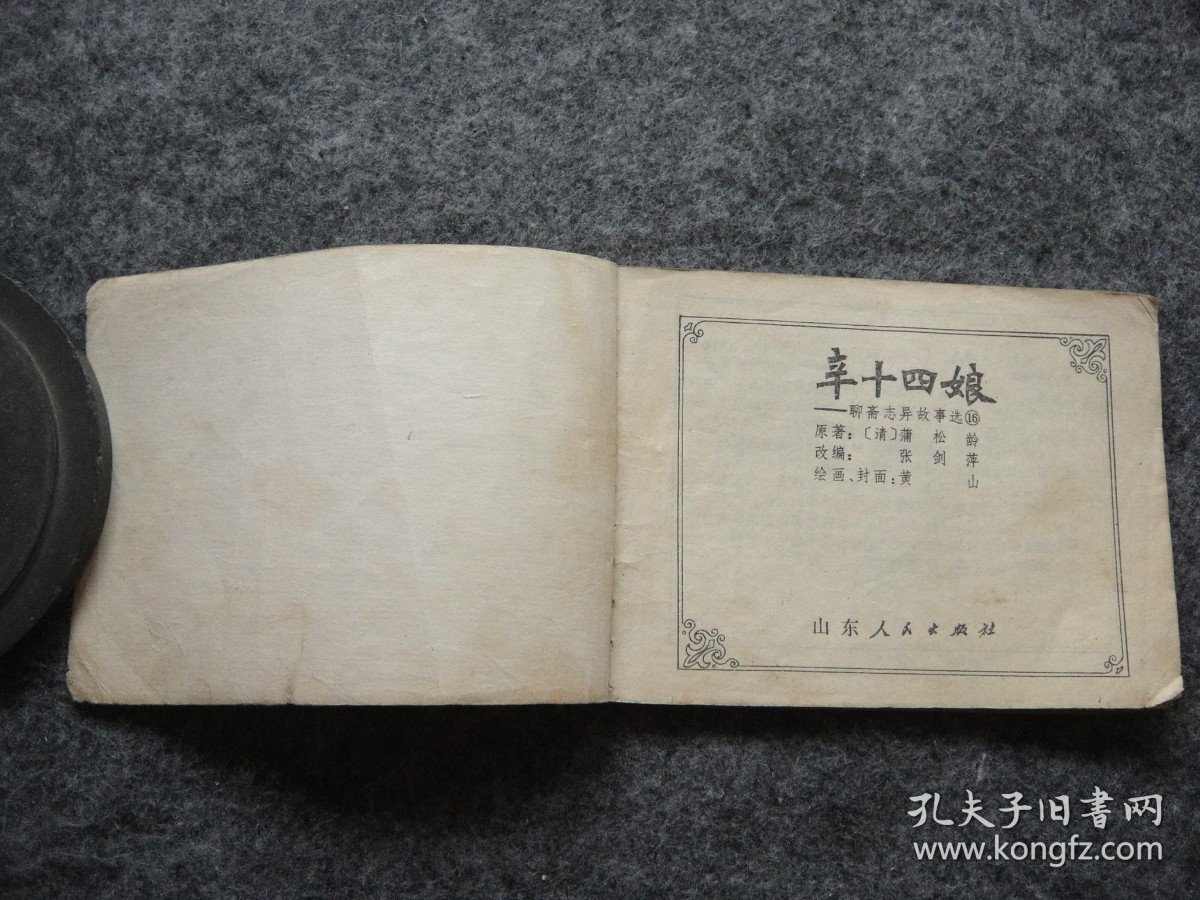 辛十四娘
——聊斋志异故事选⑯
原著：〔清〕蒲松龄
改编：张剑萍
绘画、封面：黄山
山东人民出版社
孔夫子旧书网
www.kongfz.com